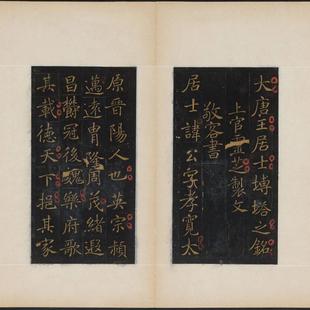 大唐王居士塼塔之銘
上官靈芝製文
敬客書
居士諱公字孝寬太
原晉陽人也英宗穎
邁遠冑隆周茂緒遐
昌欝冠後魏樂府歌
其載德天下挹其家